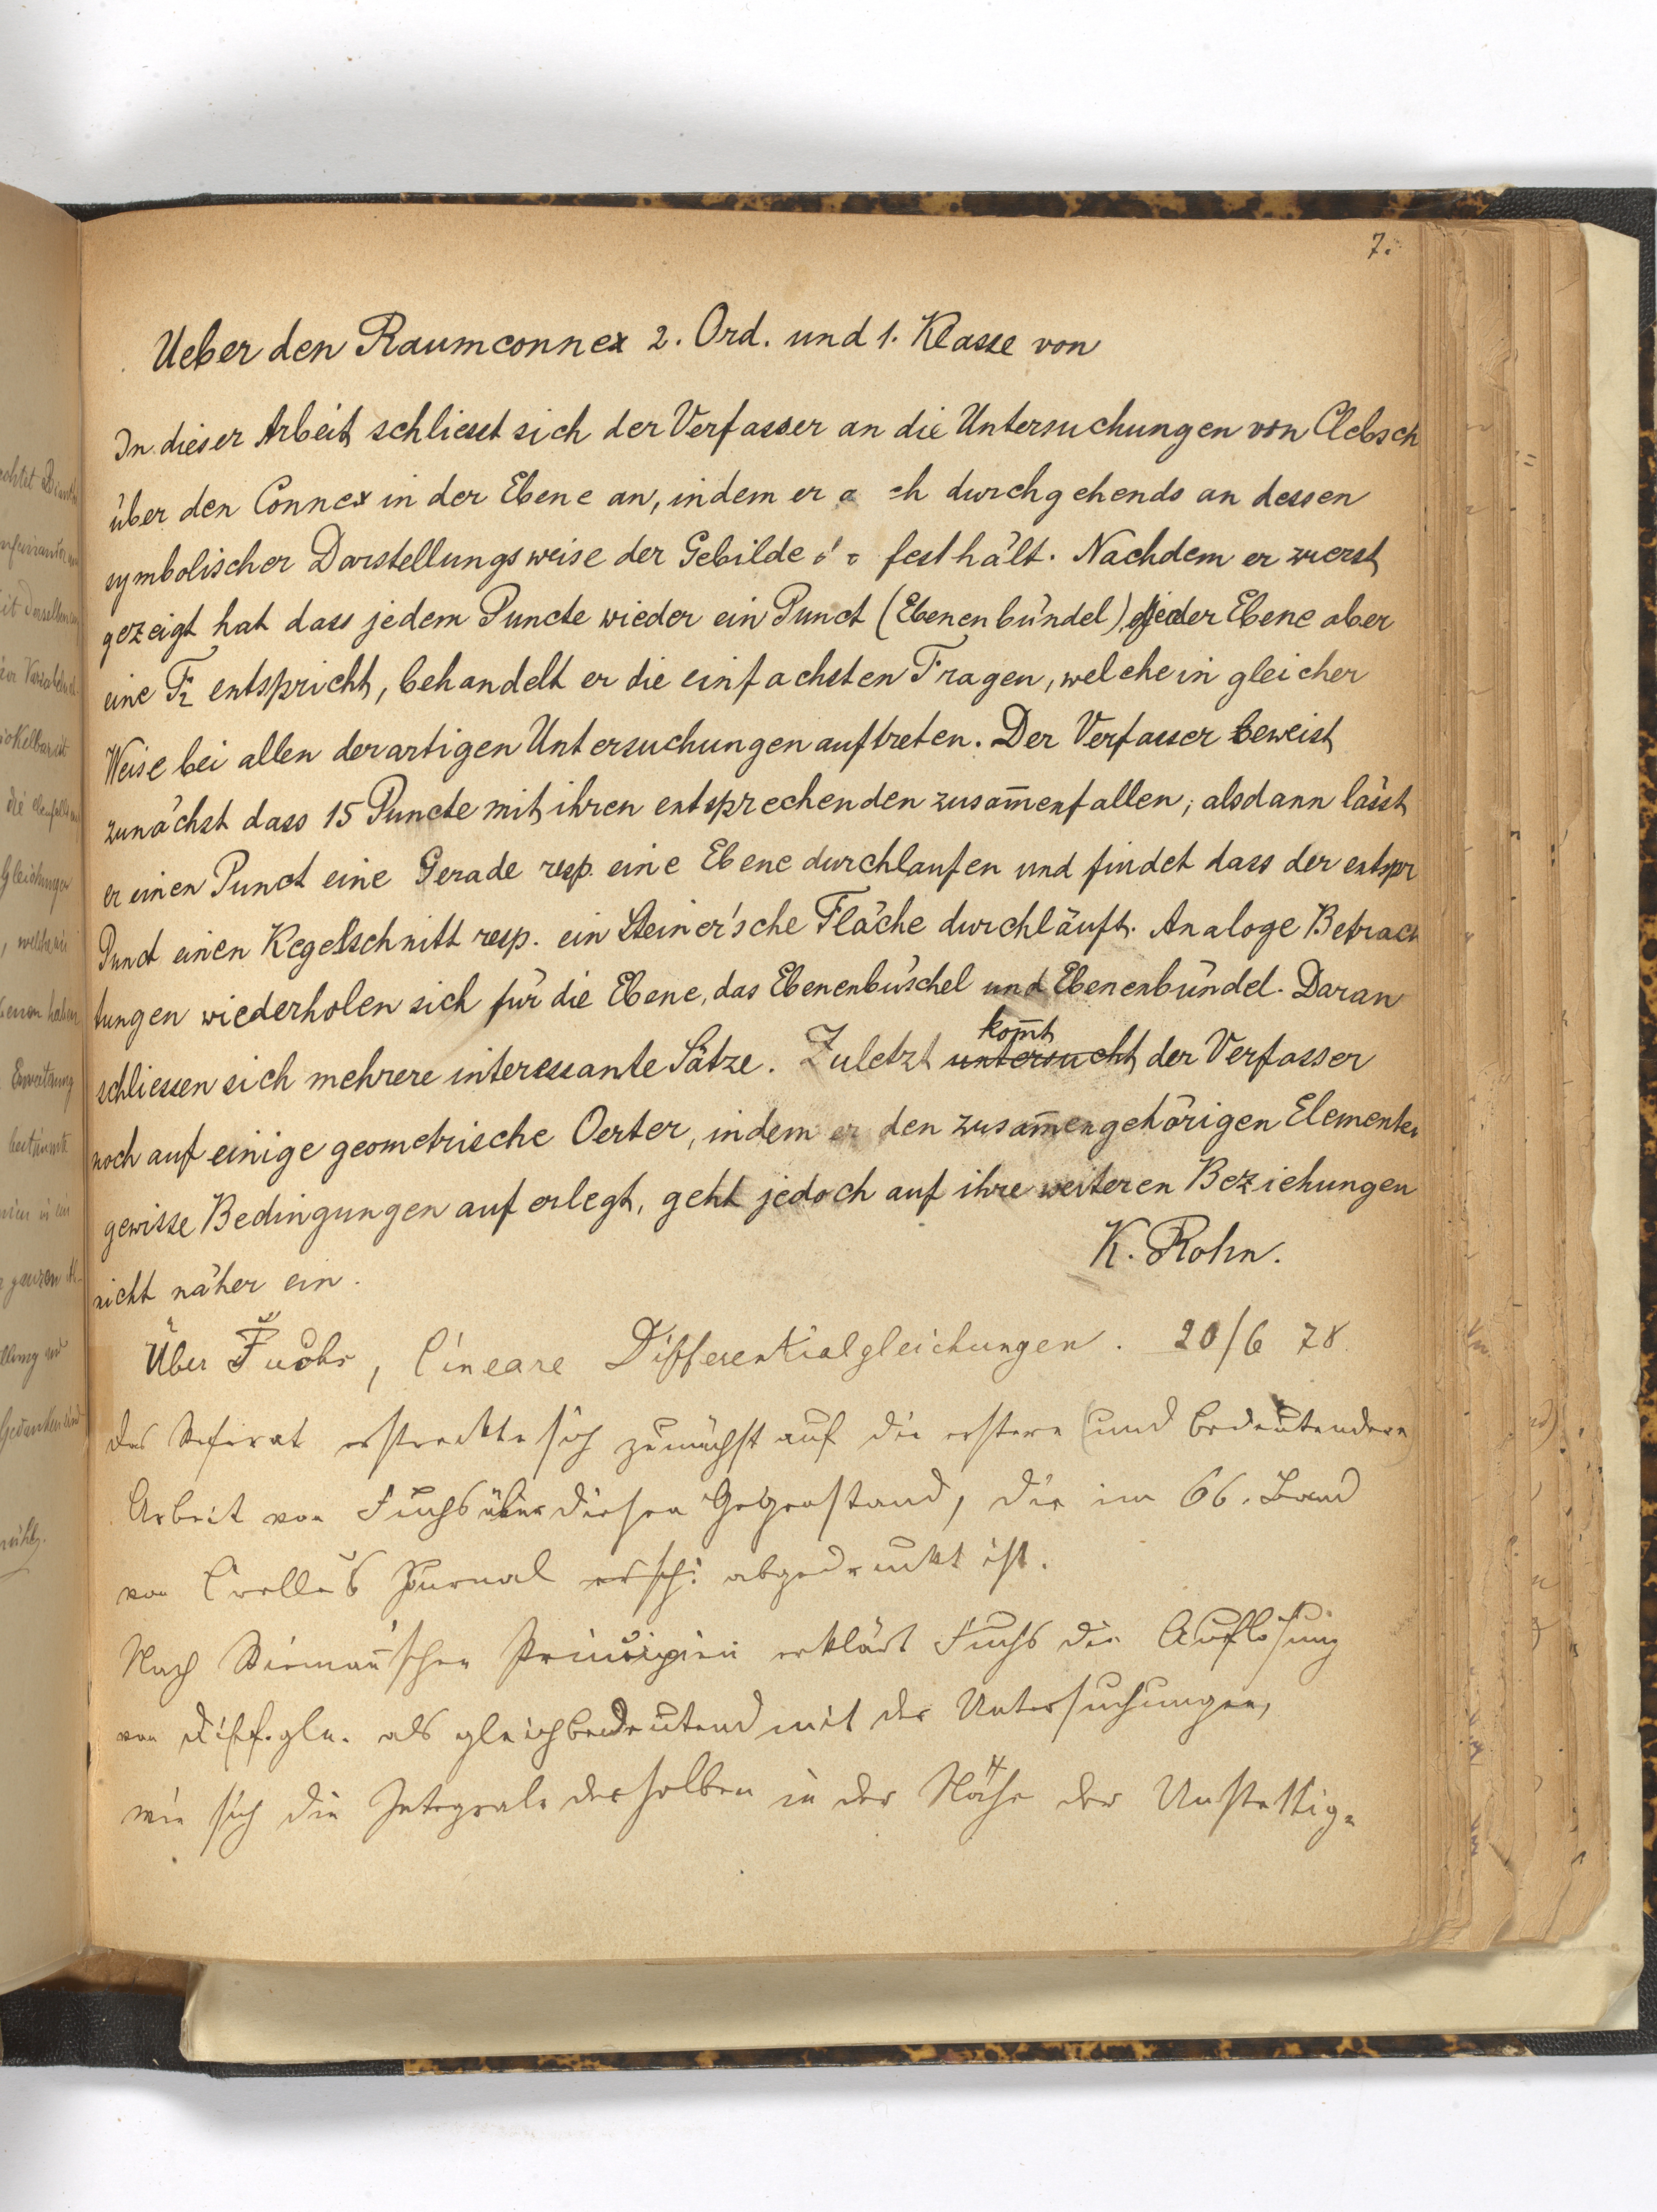 7.
Ueber den Raumconnex 2. Ord. und 1. Klasse von
In dieser Arbeit schliesst sich der Verfasser an die Untersuchungen von Clebsch
über den Connex in der Ebene an, indem er durchgehends an dessen
symbolischer Darstellungsweise der Gebilde festhält. Nachdem er zuerst
gezeigt hat dass jedem Puncte wieder ein Punct (Ebenenbündel), jeder Ebene aber
eine F2 entspricht, behandelt er die einfachsten Fragen, welche in gleicher
Weise bei allen derartigen Untersuchungen auftreten. Der Verfasser beweist
zunächst dass 15 Puncte mit ihren entsprechenden zusam̅enfallen; alsdann lässt
er einen Punct eine Gerade resp. eine Ebene durchlaufen und findet dass der entspr
Punct einen Kegelschnitt resp. ein Steiner'sche Fläche durchläuft. Analoge Betrach
tungen wiederholen sich für die Ebene, das Ebenenbüschel und Ebenenbündel. Daran
schliessen sich mehrere interessante Sätze. Zuletzt untersucht kom̅t der Verfasser
noch auf einige geometrische Oerter, indem er den zusam̅engehörigen Elementen
gewisse Bedingungen auferlegt, geht jedoch auf ihre weiteren Beziehungen
nicht näher ein.
K. Rohn.
Über Fuchs, lineare Differentialgleichungen. 20/6 78.
Das Referat erstreckte sich zunächst auf die erstere (und bedeutendere)
Arbeit von Fuchs über diesen Gegenstand, die im 66. Band
von Crelle's Journal ersch: abgedruckt ist.
Nach Rieman̅'schen Principien erklärt Fuchs die Auflösung
von Diff.gln. als gleichbedeutend mit der Untersuchungen,
wie sich die Integrale derselben in der Nähe der Unstettig-